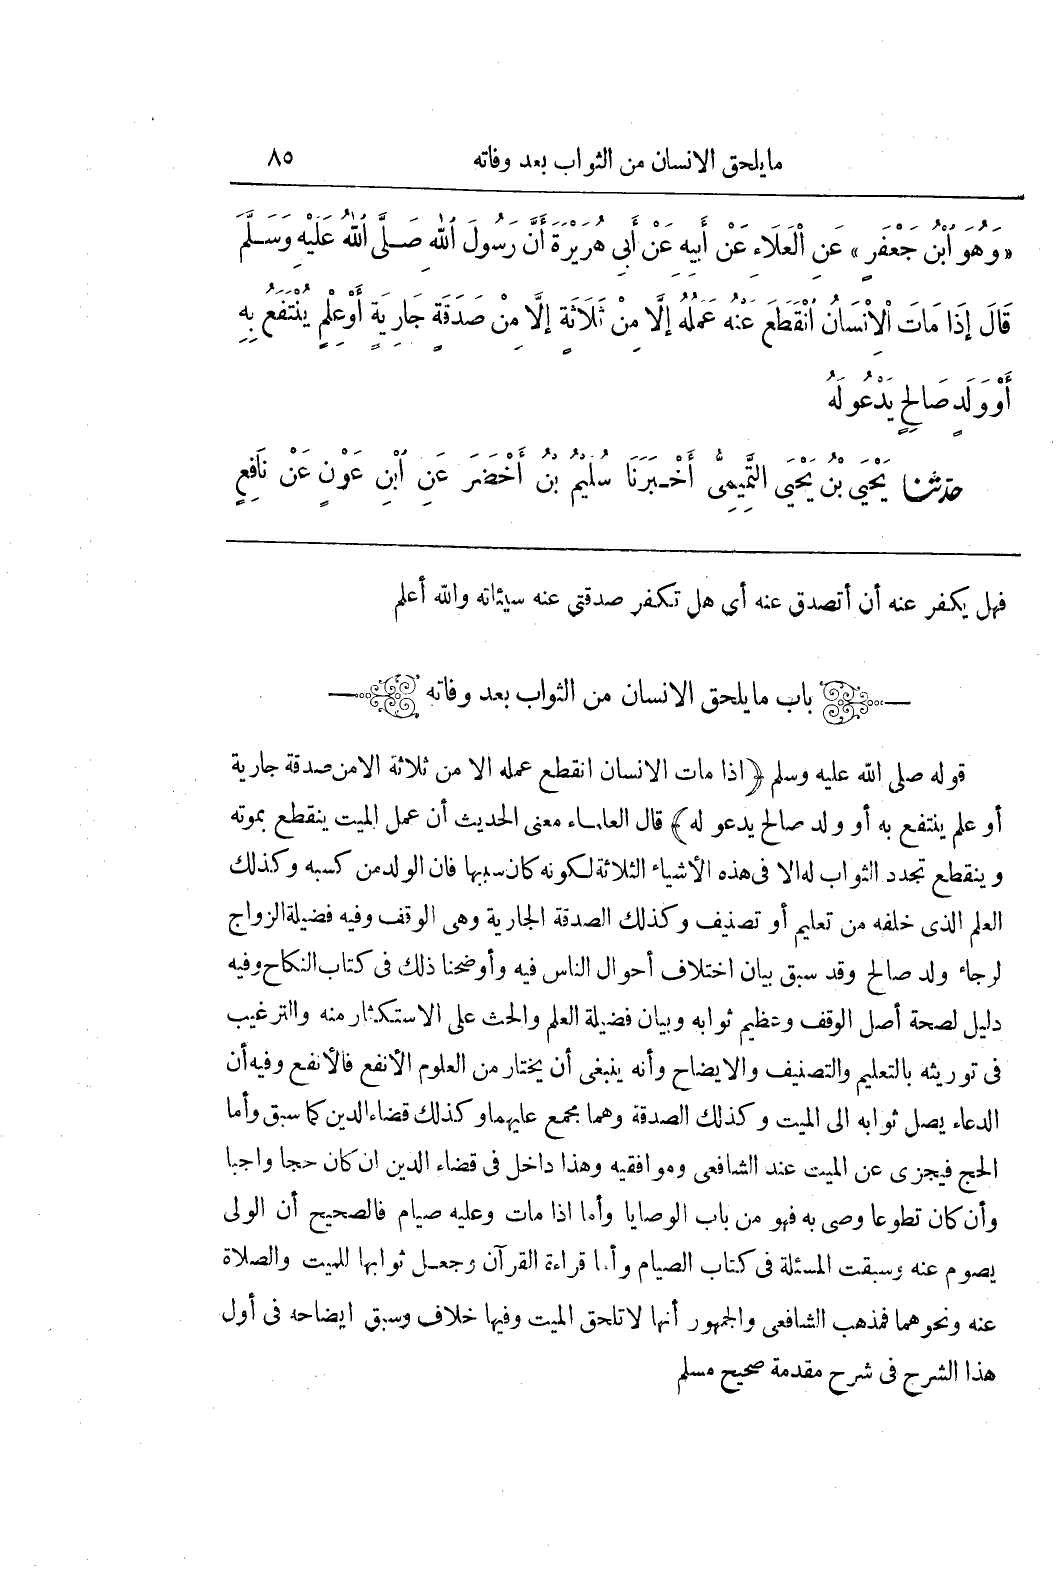 ما يلحق الانسان من الثواب بعد وفاته ٨٥
«وَهُوَ ابْنُ جَعْفَرٍ» عَنِ الْعَلَاءِ عَنْ أَبِيهِ عَنْ أَبِي هُرَيْرَةَ أَنَّ رَسُولَ اللهِ صَلَّى اللهُ عَلَيْهِ وَسَلَّمَ
قَالَ إِذَا مَاتَ الْإِنْسَانُ انْقَطَعَ عَنْهُ عَمَلُهُ إِلَّا مِنْ ثَلَاثَةٍ إِلَّا مِنْ صَدَقَةٍ جَارِيَةٍ أَوْ عِلْمٍ يُنْتَفَعُ بِهِ
أَوْ وَلَدٍ صَالِحٍ يَدْعُو لَهُ
حَدَّثَنَا يَحْيَى بْنُ يَحْيَى التَّمِيمِىُّ أَخْبَرَنَا سُلَيْمُ بْنُ أَخْضَرَ عَنِ ابْنِ عَوْنٍ عَنْ نَافِعٍ
فهل يكفر عنه أن أتصدق عنه أى هل تكفر صدقتى عنه سيئاته والله أعلم
باب ما يلحق الانسان من الثواب بعد وفاته
قوله صلى الله عليه وسلم ﴿اذا مات الانسان انقطع عمله الا من ثلاثة الا من صدقة جارية
أو علم ينتفع به أو ولد صالح يدعو له﴾ قال العلماء معنى الحديث أن عمل الميت ينقطع بموته
وينقطع تجدد الثواب له الا فى هذه الأشياء الثلاثة لكونه كان سببها فان الولد من كسبه وكذلك
العلم الذى خلفه من تعليم أو تصنيف وكذلك الصدقة الجارية وهى الوقف وفيه فضيلة الزواج
لرجاء ولد صالح وقد سبق بيان اختلاف أحوال الناس فيه وأوضحنا ذلك فى كتاب النكاح وفيه
دليل لصحة أصل الوقف وعظيم ثوابه وبيان فضيلة العلم والحث على الاستكثار منه والترغيب
فى توريثه بالتعليم والتصنيف والايضاح وأنه ينبغى أن يختار من العلوم الأنفع فالأنفع وفيه أن
الدعاء يصل ثوابه الى الميت وكذلك الصدقة وهما مجمع عليهما وكذلك قضاء الدين كما سبق وأما
الحج فيجزى عن الميت عند الشافعى وموافقيه وهذا داخل فى قضاء الدين ان كان حجا واجبا
وأن كان تطوعا وصى به فهو من باب الوصايا وأما اذا مات وعليه صيام فالصحيح أن الولى
يصوم عنه وسبقت المسئلة فى كتاب الصيام وأما قراءة القرآن وجعل ثوابها للميت والصلاة
عنه ونحوهما فمذهب الشافعى والجمهور أنها لا تلحق الميت وفيها خلاف وسبق ايضاحه فى أول
هذا الشرح فى شرح مقدمة صحيح مسلم